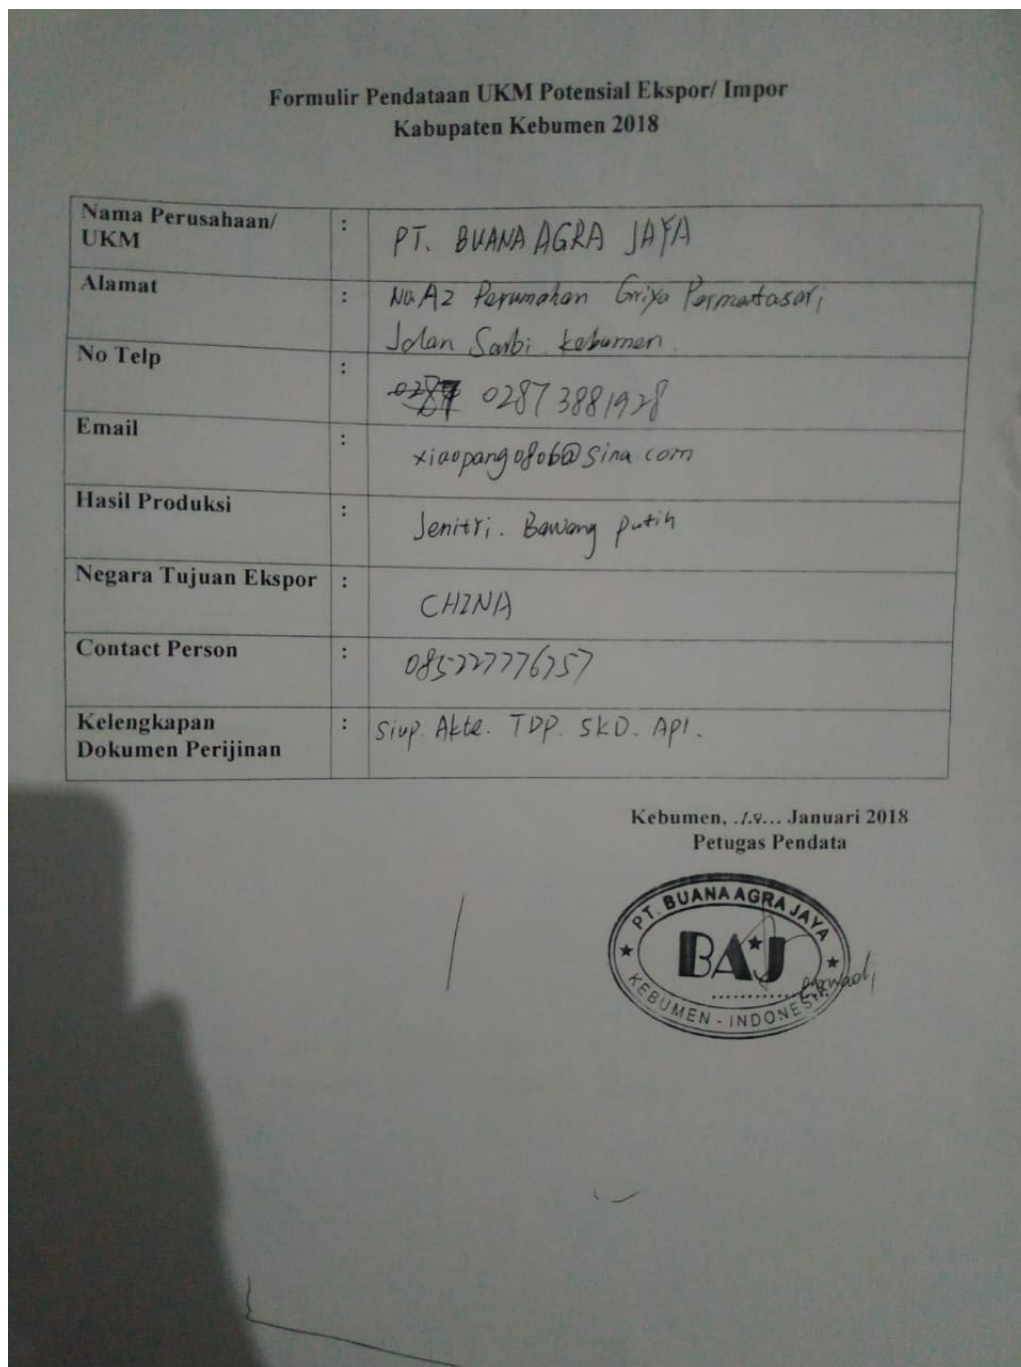 Formulir Pendataan UKM Potensial Ekspor/ Impor
Kabupaten Kebumen 2018
Nama Perusahaan/ UKM : PT. BUANA AGRA JAYA
Alamat : No A2 Perumahan Griya Permatasari,
Jalan Sarbi Kebumen.
No Telp : 0287 3881928
Email : xiaopang0806@sina.com
Hasil Produksi : Jenitri. Bawang putih
Negara Tujuan Ekspor : CHINA
Contact Person :
Kelengkapan Dokumen Perijinan : Siup. Akte. TDP. SKD. API.
Kebumen, Januari 2018
Petugas Pendata
PT. BUANA AGRA JAYA
BAJ
KEBUMEN - INDONESIA